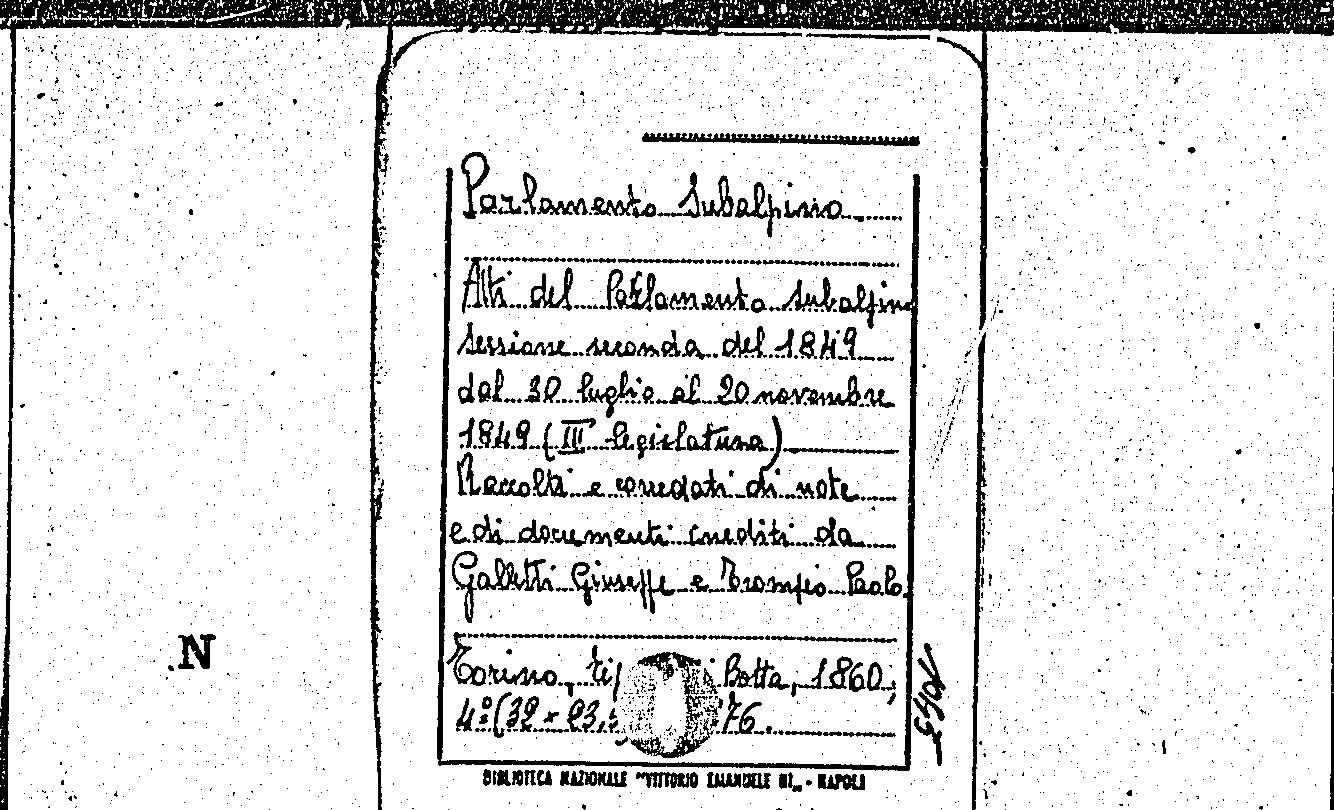 Parlamento Subalpino
Atti del Parlamento subalpino
sessione seconda del 1849
dal 30 luglio al 20 novembre
1849 (III legislatura)
Raccolti e corredati di note
e di documenti inediti da
Galletti Giuseppe e Trompeo Paolo.
N
Torino, tip Botta, 1860;
4º (32 × 23, 76.
BIBLIOTECA NAZIONALE "VITTORIO EMANUELE III" - NAPOLI